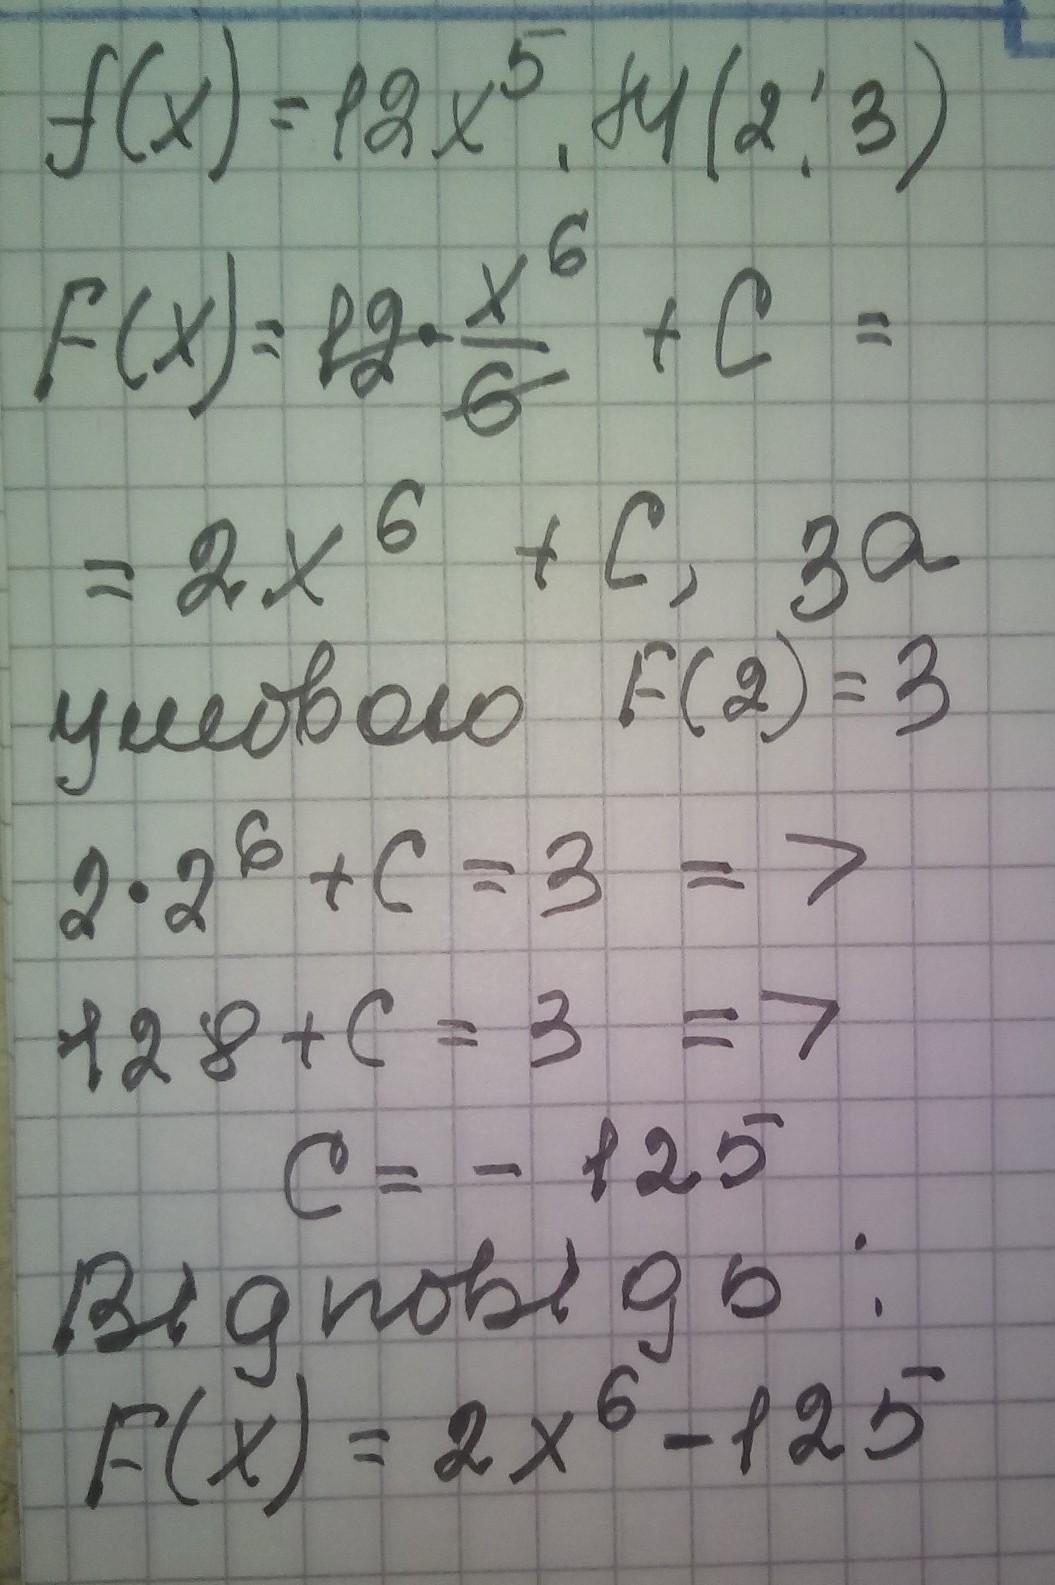 f(x) = 12x⁵, M(2; 3)
F(x) = 12 · x⁶/6 + C =
= 2x⁶ + C, за
умовою F(2) = 3
2 · 2⁶ + C = 3 =>
128 + C = 3 =>
C = - 125
Відповідь:
F(x) = 2x⁶ - 125